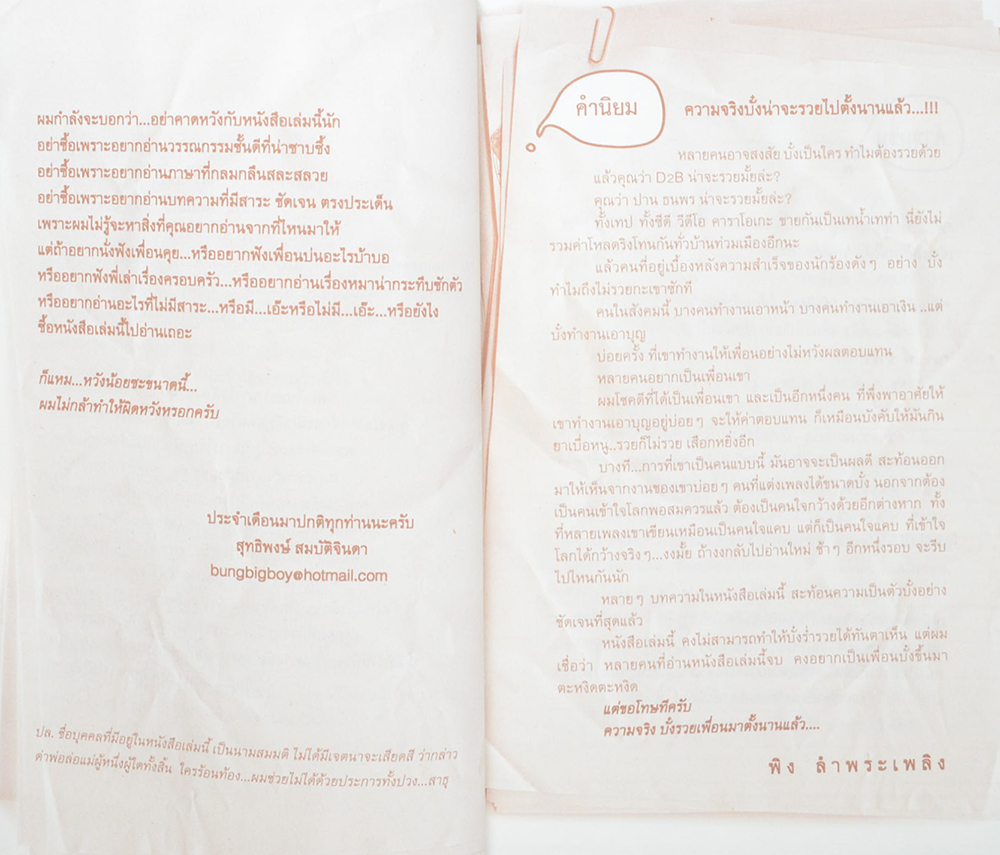 ผมกำลังจะบอกว่า...อย่าคาดหวังกับหนังสือเล่มนี้นัก
อย่าซื้อเพราะอยากอ่านวรรณกรรมชั้นดีที่น่าซาบซึ้ง
อย่าซื้อเพราะอยากอ่านภาษาที่กลมกลืนสละสลวย
อย่าซื้อเพราะอยากอ่านบทความที่มีสาระ ชัดเจน ตรงประเด็น
เพราะผมไม่รู้จะหาสิ่งที่คุณอยากอ่านจากที่ไหนมาให้
แต่ถ้าอยากนั่งฟังเพื่อนคุย...หรืออยากฟังเพื่อนบ่นอะไรบ้าบอ
หรืออยากฟังพี่เล่าเรื่องครอบครัว...หรืออยากอ่านเรื่องหมาน่ากระทืบซักตัว
หรืออยากอ่านอะไรที่ไม่มีสาระ...หรือมี...เอ๊ะหรือไม่มี...เอ๊ะ...หรือยังไง
ซื้อหนังสือเล่มนี้ไปอ่านเถอะ
ก็แหม...หวังน้อยซะขนาดนี้...
ผมไม่กล้าทำให้ผิดหวังหรอกครับ
ประจำเดือนมาปกติทุกท่านนะครับ
สุทธิพงษ์ สมบัติจินดา
bungbigboy@hotmail.com
ปล. ชื่อบุคคลที่มีอยู่ในหนังสือเล่มนี้ เป็นนามสมมติ ไม่ได้มีเจตนาจะเสียดสี ว่ากล่าว
ด่าพ่อล่อแม่ผู้หนึ่งผู้ใดทั้งสิ้น ใครร้อนท้อง...ผมช่วยไม่ได้ด้วยประการทั้งปวง...สาธุ
คำนิยม
ความจริงบั๋งน่าจะรวยไปตั้งนานแล้ว...!!!
หลายคนอาจสงสัย บั๋งเป็นใคร ทำไมต้องรวยด้วย
แล้วคุณว่า D2B น่าจะรวยมั้ยล่ะ?
คุณว่า ปาน ธนพร น่าจะรวยมั้ยล่ะ?
ทั้งเทป ทั้งซีดี วีดีโอ คาราโอเกะ ขายกันเป็นเทน้ำเทท่า นี่ยังไม่
รวมค่าโหลดริงโทนกันทั่วบ้านท่วมเมืองอีกนะ
แล้วคนที่อยู่เบื้องหลังความสำเร็จของนักร้องดังๆ อย่าง บั๋ง
ทำไมถึงไม่รวยกะเขาซักที
คนในสังคมนี้ บางคนทำงานเอาหน้า บางคนทำงานเอาเงิน ..แต่
บั๋งทำงานเอาบุญ
บ่อยครั้ง ที่เขาทำงานให้เพื่อนอย่างไม่หวังผลตอบแทน
หลายคนอยากเป็นเพื่อนเขา
ผมโชคดีที่ได้เป็นเพื่อนเขา และเป็นอีกหนึ่งคน ที่พึ่งพาอาศัยให้
เขาทำงานเอาบุญอยู่บ่อยๆ จะให้ค่าตอบแทน ก็เหมือนบังคับให้มันกิน
ยาเบื่อหนู..รวยก็ไม่รวย เสือกหยิ่งอีก
บางที...การที่เขาเป็นคนแบบนี้ มันอาจจะเป็นผลดี สะท้อนออก
มาให้เห็นจากงานของเขาบ่อยๆ คนที่แต่งเพลงได้ขนาดบั๋ง นอกจากต้อง
เป็นคนเข้าใจโลกพอสมควรแล้ว ต้องเป็นคนใจกว้างด้วยอีกต่างหาก ทั้ง
ที่หลายเพลงเขาเขียนเหมือนเป็นคนใจแคบ แต่ก็เป็นคนใจแคบ ที่เข้าใจ
โลกได้กว้างจริงๆ...งงมั้ย ถ้างงกลับไปอ่านใหม่ ช้าๆ อีกหนึ่งรอบ จะรีบ
ไปไหนกันนัก
หลายๆ บทความในหนังสือเล่มนี้ สะท้อนความเป็นตัวบั๋งอย่าง
ชัดเจนที่สุดแล้ว
หนังสือเล่มนี้ คงไม่สามารถทำให้บั๋งร่ำรวยได้ทันตาเห็น แต่ผม
เชื่อว่า หลายคนที่อ่านหนังสือเล่มนี้จบ คงอยากเป็นเพื่อนบั๋งขึ้นมา
ตะหงิดตะหงิด
แต่ขอโทษทีครับ
ความจริง บั๋งรวยเพื่อนมาตั้งนานแล้ว....
พิง ลำพระเพลิง